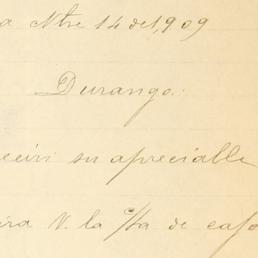 a Nbre 14 de 1,909
Durango.
su apreciable
V. la c/ta de